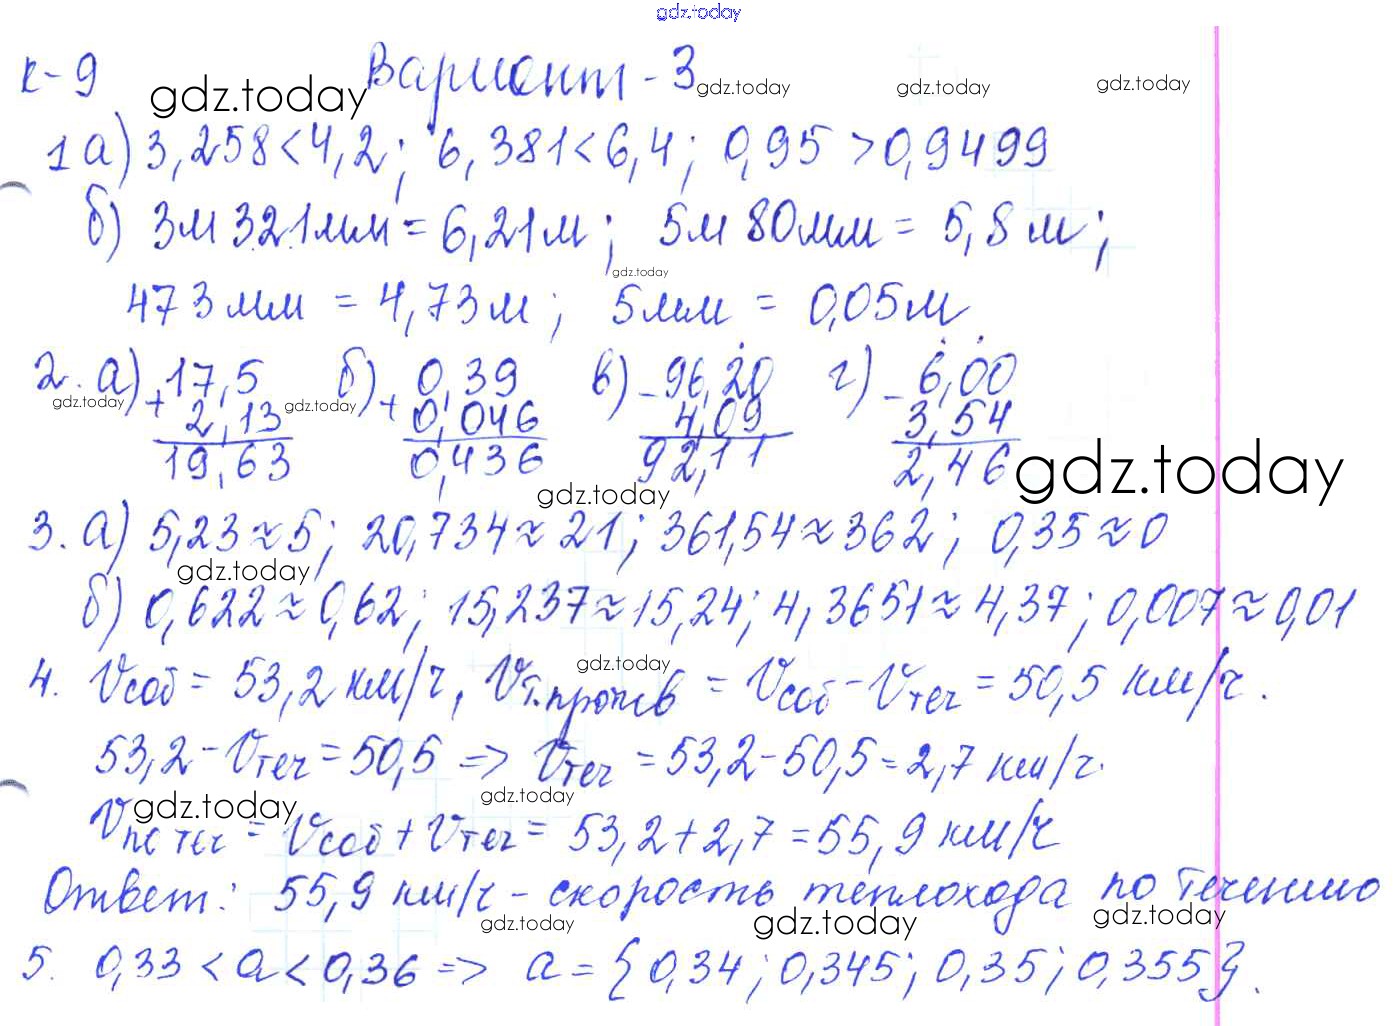 gdz.today
К-9 Вариант-3
gdz.today gdz.today gdz.today gdz.today
1 а) 3,258<4,2; 6,381<6,4; 0,95>0,9499
б) 3м 321мм = 6,21м; 5м 80мм = 5,8м;
gdz.today
473мм = 4,73м; 5мм = 0,05м
2. а) +17,5 б) + 0,39 в) -96,20 г) - 6,00
2,13 0,046 4,09 3,54
19,63 0,436 92,11 2,46
gdz.today gdz.today gdz.today gdz.today
3. а) 5,23≈5; 20,734≈21; 361,54≈362; 0,35≈0
gdz.today
б) 0,622≈0,62; 15,237≈15,24; 4,3651≈4,37; 0,007≈0,01
gdz.today
4. Vсоб = 53,2 км/ч, Vт.против = Vсоб - Vтеч = 50,5 км/ч.
53,2 - Vтеч = 50,5 => Vтеч = 53,2 - 50,5 = 2,7 км/ч.
gdz.today gdz.today
Vпо теч = Vсоб + Vтеч = 53,2 + 2,7 = 55,9 км/ч
Ответ: 55,9 км/ч - скорость теплохода по течению
gdz.today gdz.today gdz.today
5. 0,33 < а < 0,36 => а = {0,34; 0,345; 0,35; 0,355}.